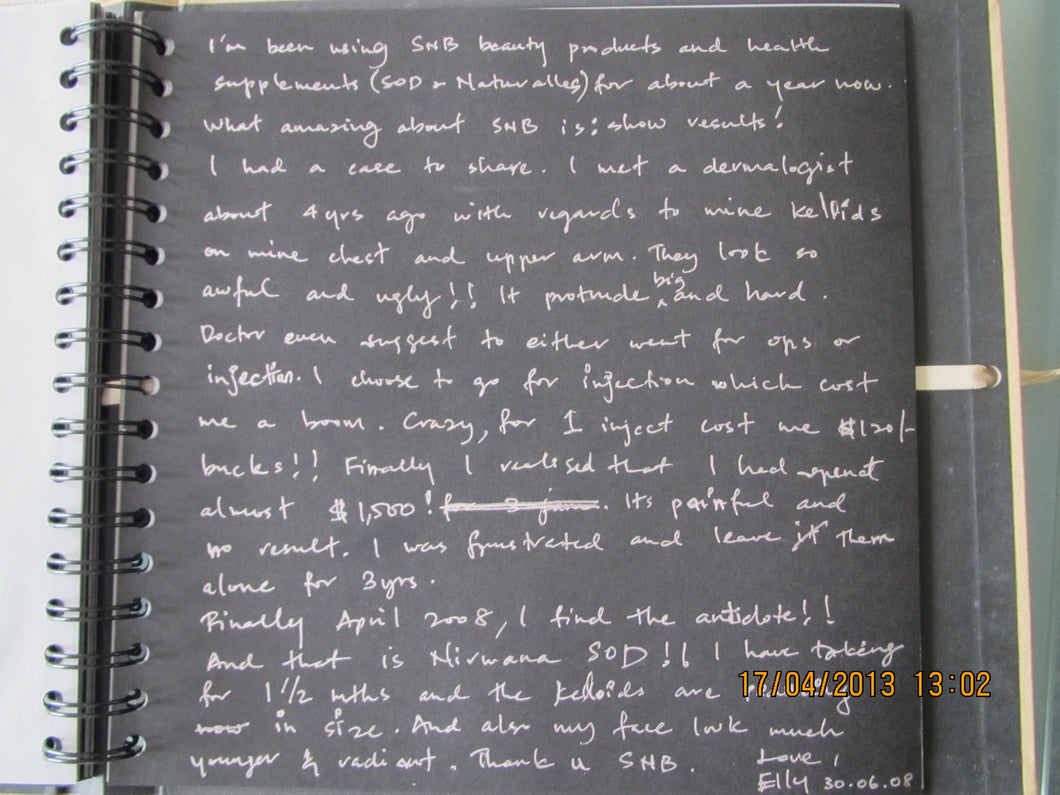 I'm been using SNB beauty products and health
supplements (SOD - Naturalles) for about a year now.
What amazing about SNB is: show results!
I had a case to share. I met a dermalogist
about 4yrs ago with regards to mine keloids
on mine chest and upper arm. They look so
awful and ugly!! It protrude big and hard.
Doctor even suggest to either went for ops or
injection. I choose to go for injection which cost
me a boom. Crazy, for 1 inject cost me $120/-
bucks!! Finally I realised that I had spend
almost $1,500! Its painful and
no result. I was frustrated and leave them
alone for 3yrs.
Finally April 2008, I find the antidote!!
And that is Nirwana SOD!! I have taking
for 1 1/2 mths and the keloids are
in size. And also my face look much
younger & radiant. Thank u SNB.
Love,
Elly 30.06.08
17/04/2013 13:02